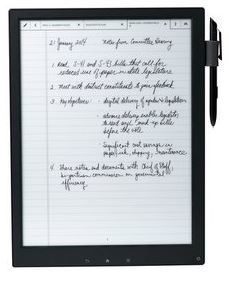 21 January 2014 Notes from Committee Hearing
1. Read S-41 and S-43 bills that call for
reduced use of paper in state legislature
2. Meet with district constituents to give feedback
3. Key objectives - digital delivery of updates & legislation
- advance delivery enables legislators
to read and mark-up bills
before the vote
- Significant cost savings in
paper, ink, shipping, maintenance
4. Share notes and documents with Chief of Staff,
bi-partisan commission on governmental
efficiency